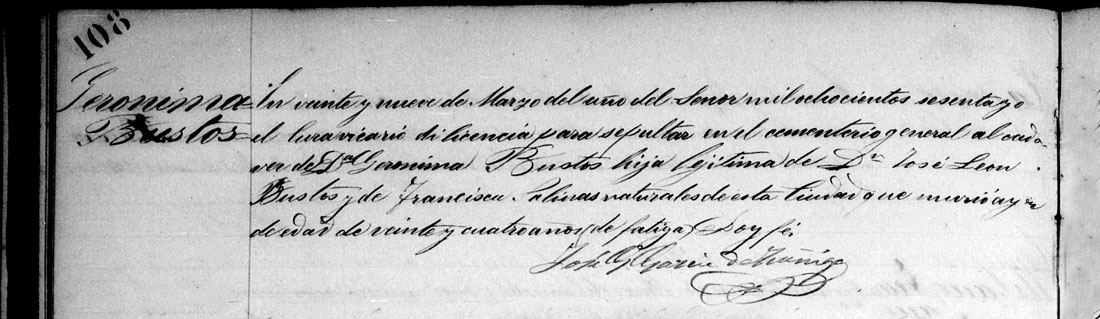 108
Geronima
Bustos
En veinte y nueve de Marzo del año del Señor mil ochocientos sesenta yo
el Cura vicario di licencia para sepultar en el cementerio general al cadá-
ver de Da. Geronima Bustos hija lejitima de Dn. José Leon
Bustos y de Francisca Salinas naturales de esta Ciudad que murió ayer
de edad de veinte y cuatro años (de fatiga) Doy fé.
José G. Garcia de Zúñiga